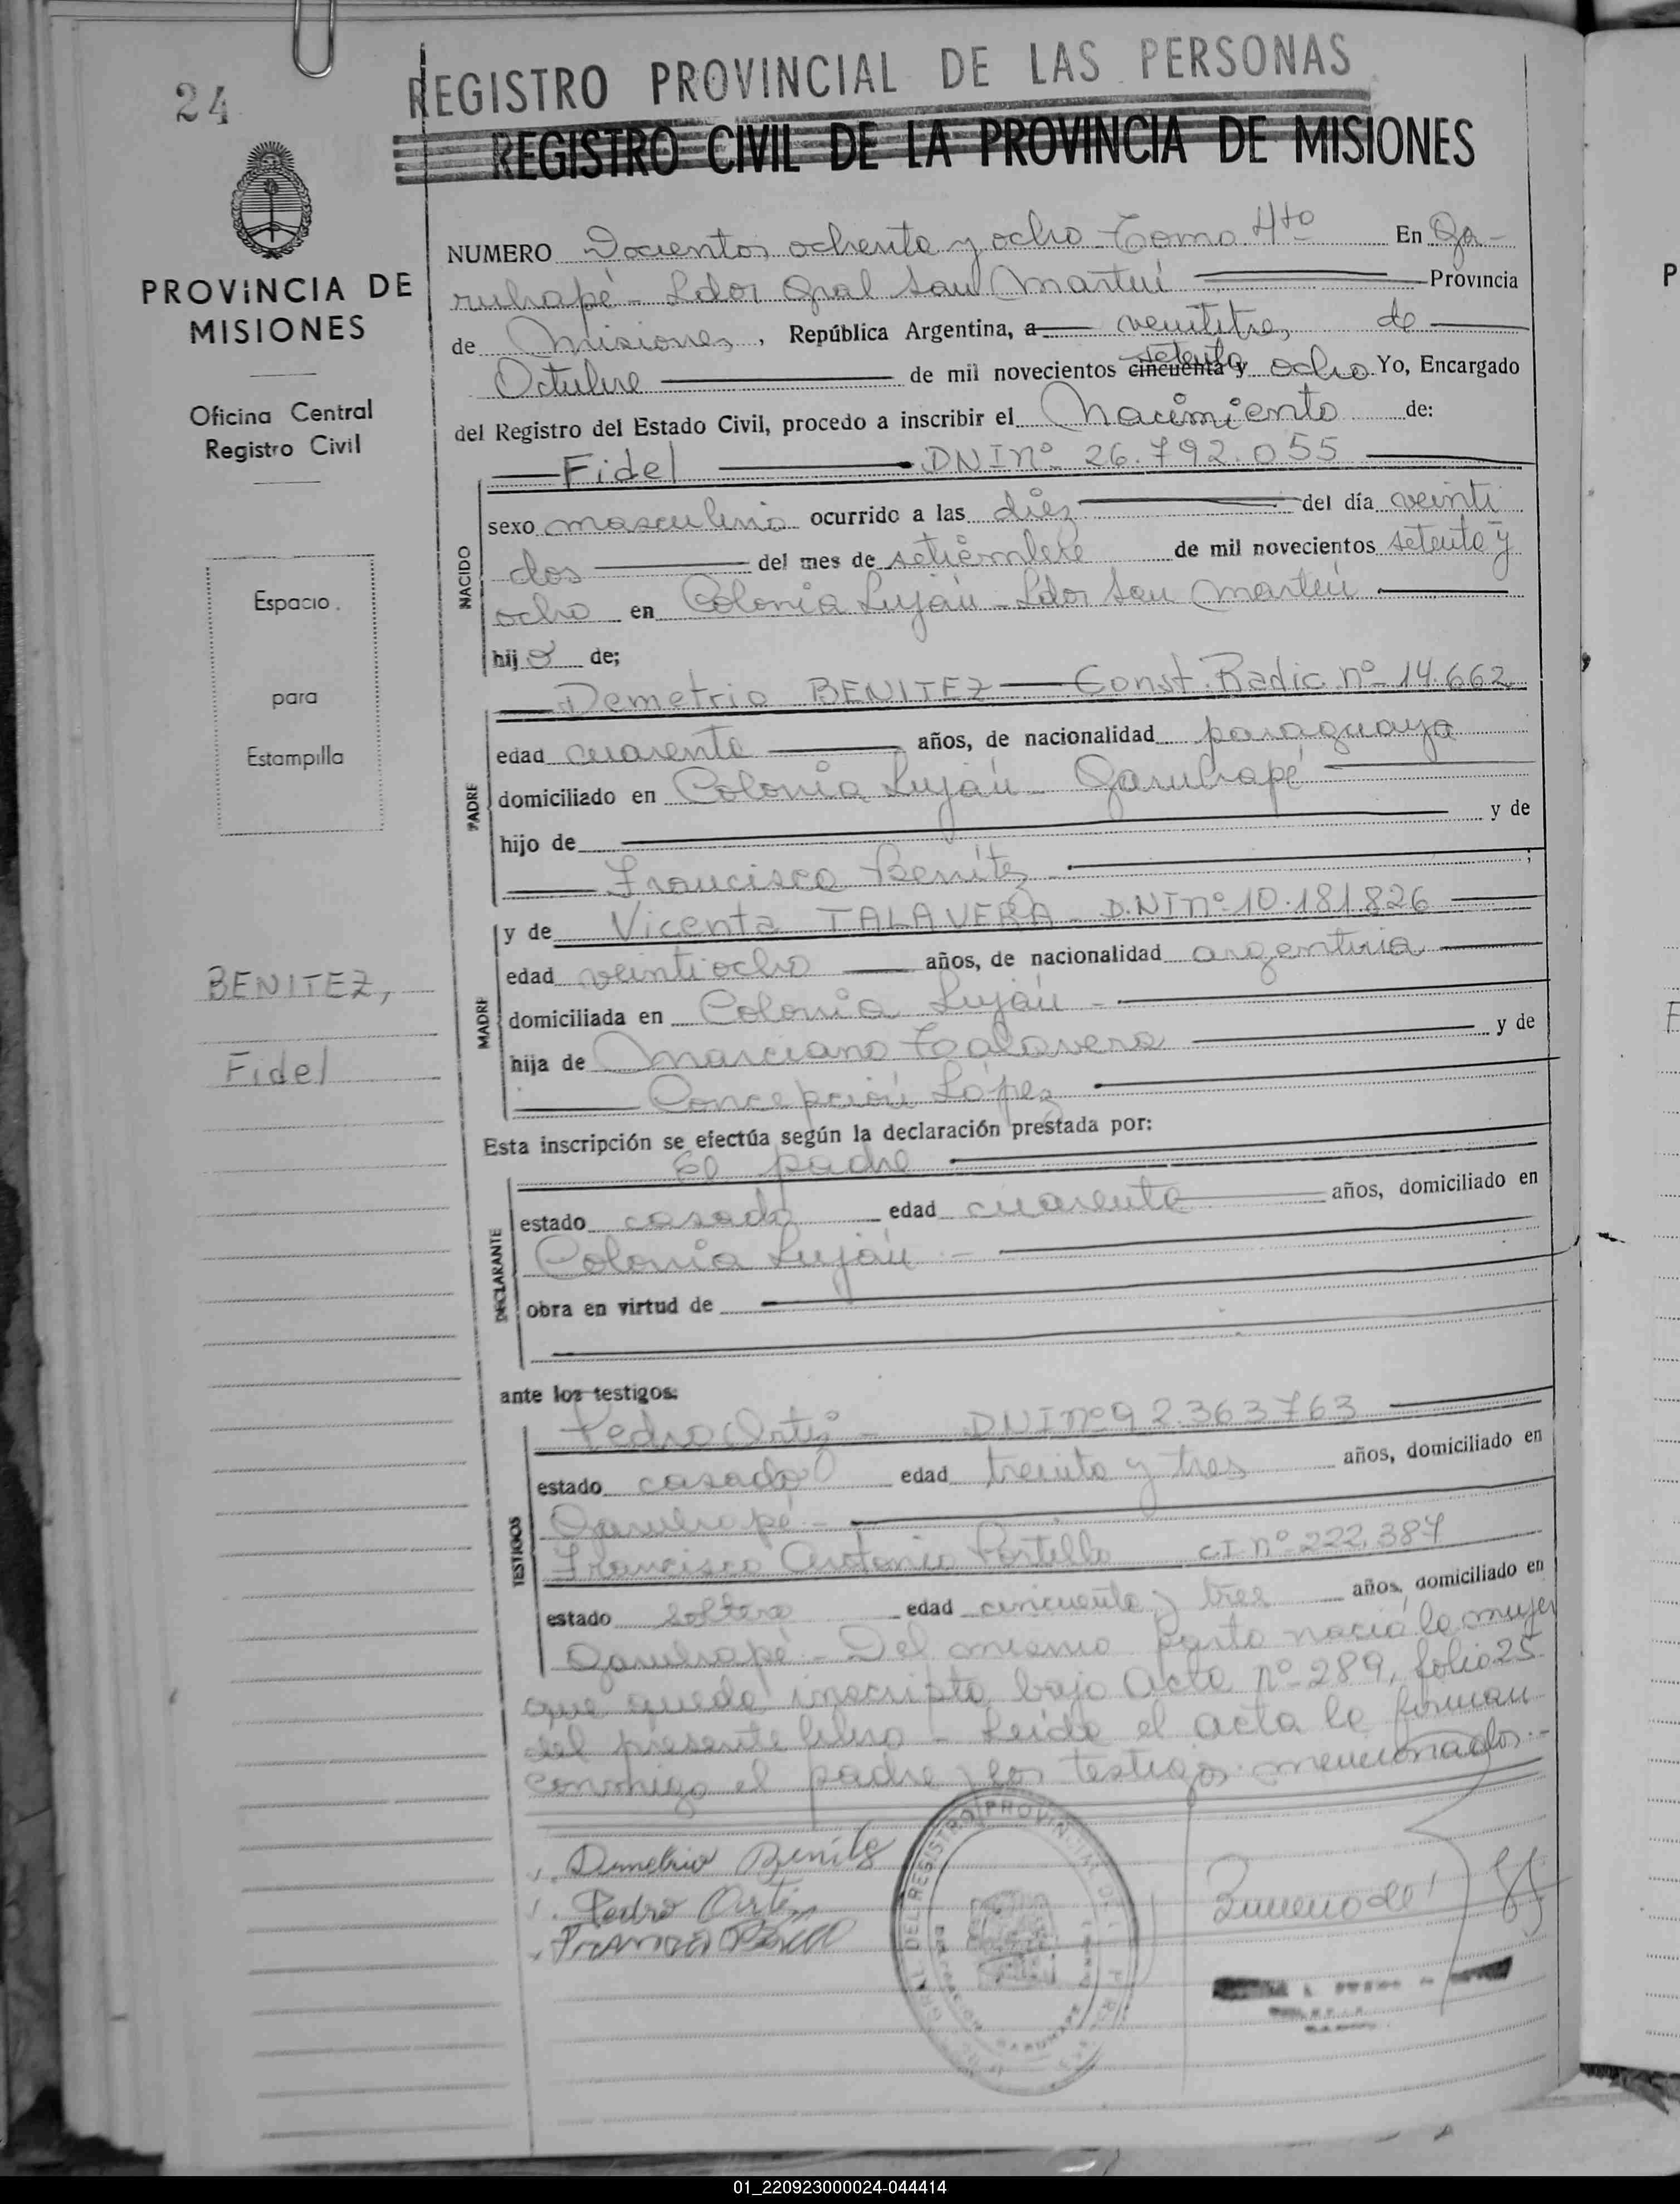 24
REGISTRO PROVINCIAL DE LAS PERSONAS
REGISTRO CIVIL DE LA PROVINCIA DE MISIONES
PROVINCIA DE
MISIONES
Oficina Central
Registro Civil
Espacio
para
Estampilla
BENITEZ,
Fidel
NUMERO Docientos ochenta y ocho Tomo 4to En Ga-
ruhapé - Ldor Gral San Martín Provincia
de Misiones, República Argentina, a veintitres de
Octubre de mil novecientos cincuenta setenta y ocho Yo, Encargado
del Registro del Estado Civil, procedo a inscribir el Nacimiento de:
Fidel DNI nº 26.792.055
NACIDO
sexo masculino ocurrido a las diez del día veinti
dos del mes de setiembre de mil novecientos setenta y
ocho en Colonia Luján - Ldor San Martín
hijo de;
PADRE
Demetrio BENITEZ Const. Radic. nº 14.662
edad cuarenta años, de nacionalidad paraguaya
domiciliado en Colonia Luján - Garuhapé
hijo de y de
Francisca Benítez ;
MADRE
y de Vicenta TALAVERA - D.NI nº 10.181.826
edad veintiocho años, de nacionalidad argentina
domiciliada en Colonia Luján -
hija de Marciano Talavera y de
Concepción López
Esta inscripción se efectúa según la declaración prestada por:
El padre
DECLARANTE
estado casado edad cuarenta años, domiciliado en
Colonia Luján -
obra en virtud de
ante los testigos:
TESTIGOS
Pedro Ortiz - DNI nº 92.363763
estado casado edad treinta y tres años, domiciliado en
Garuhapé -
Francisco Antonio Portillo C.I. nº 222.387
estado soltero edad cincuenta y tres años, domiciliado en
Garuhapé - Del mismo parto nació la mujer
que queda inscripta bajo Acta nº 289, folio 25
del presente libro - Leída el acta la firman
conmigo el padre y los testigos mencionados.-
Demetrio Benitez
Pedro Ortiz
DEL REGISTRO PROVINCIAL DE
01_220923000024-044414